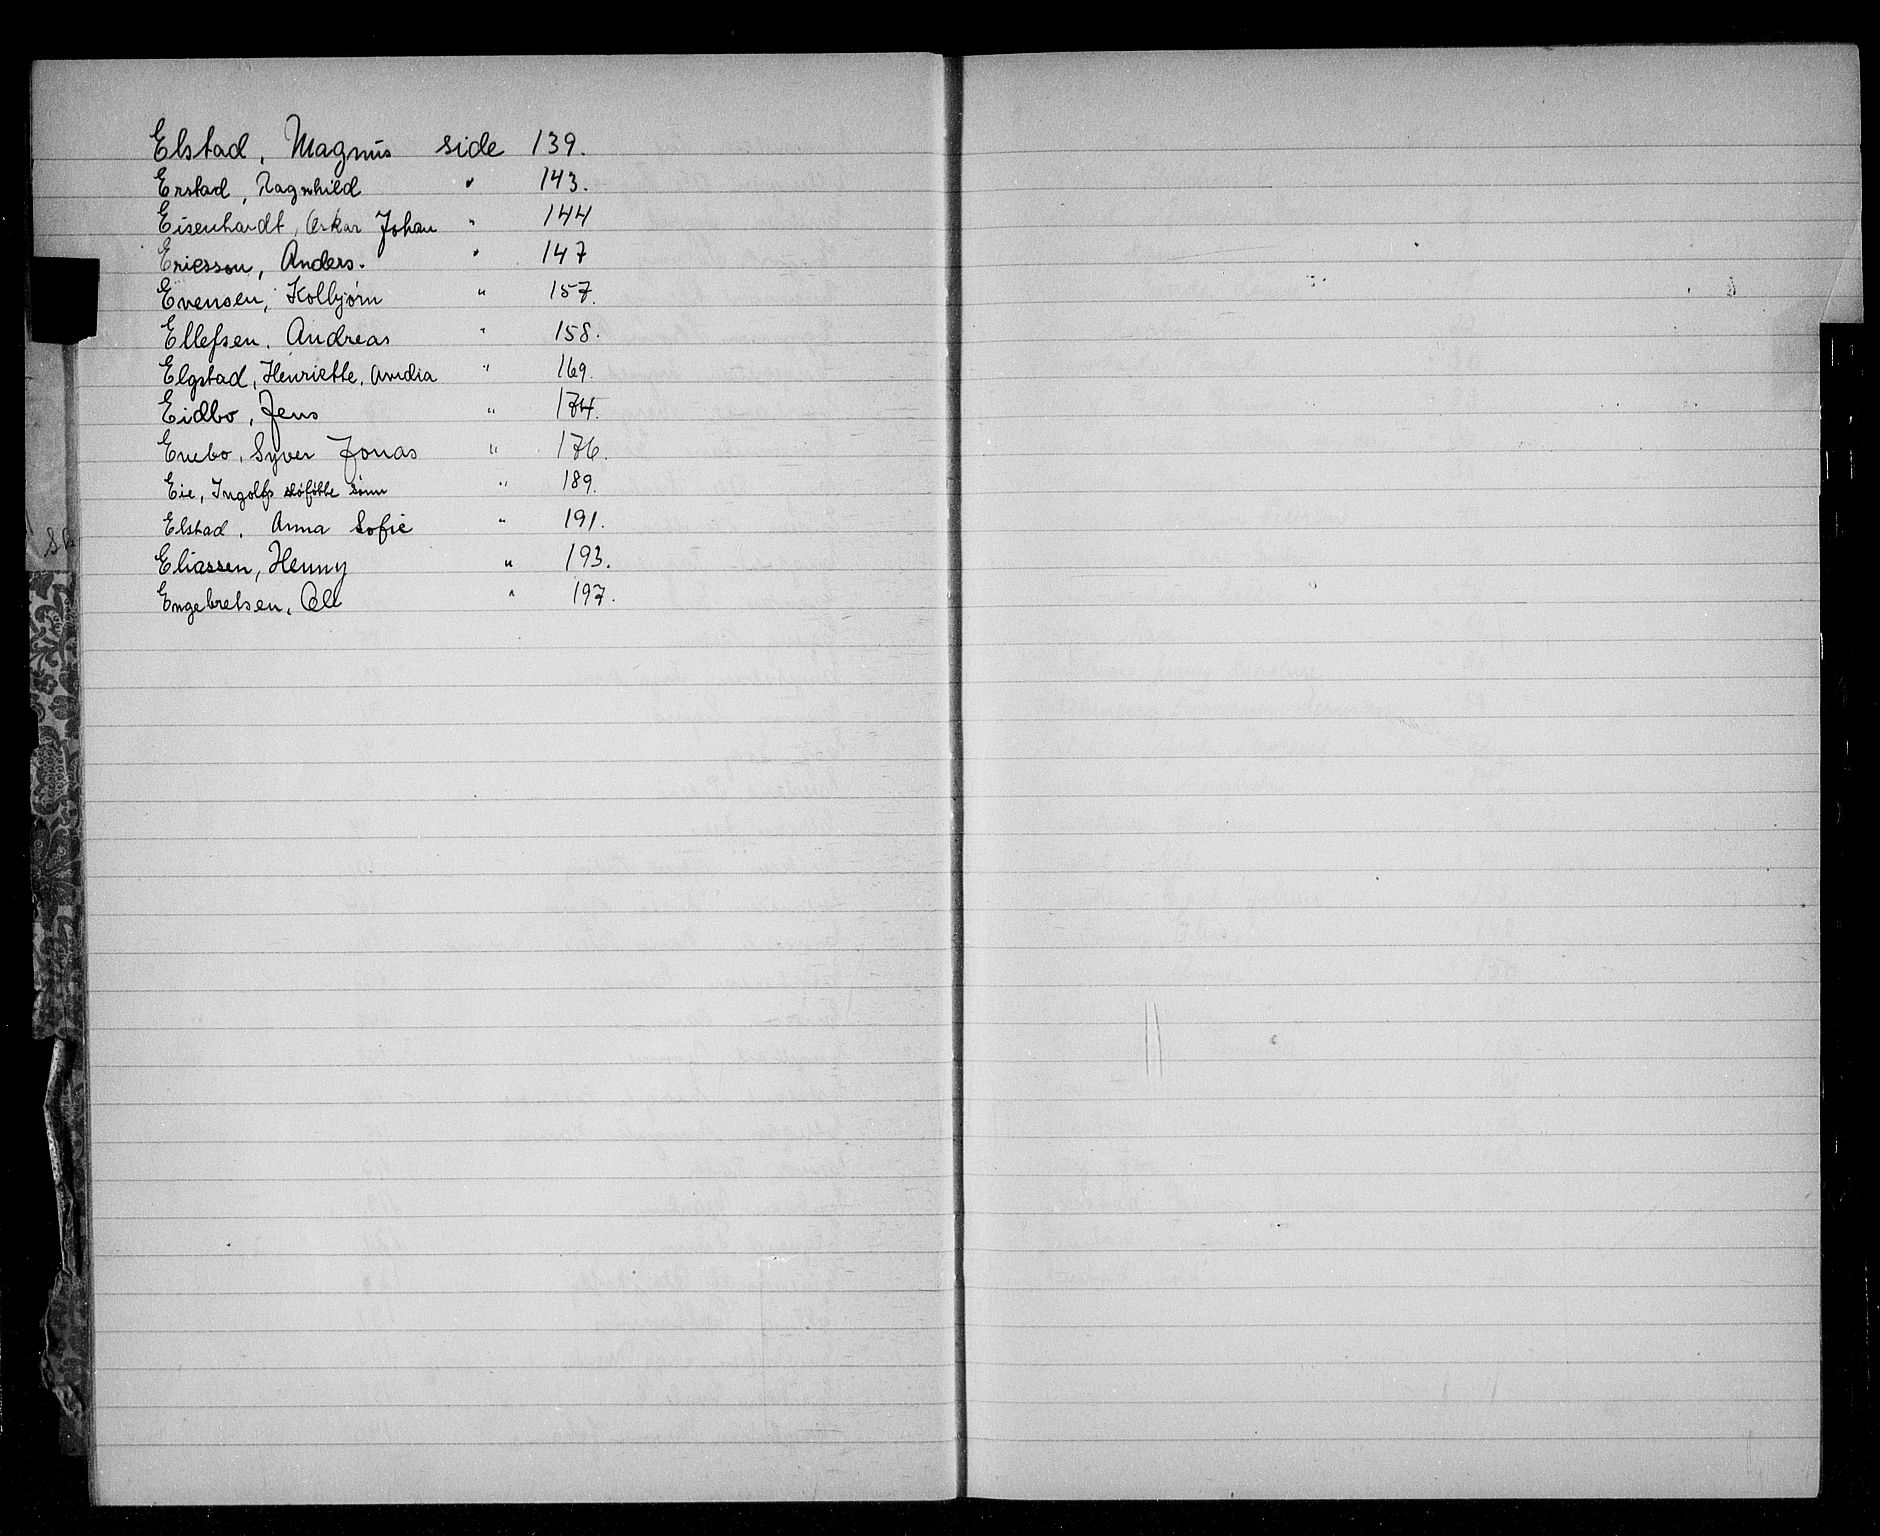 Elstad, Magnus side 139.
Erstad, Ragnhild " 143.
Eisenhardt, Oskar Johan " 144
Ericsson, Anders. " 147
Evensen, Kolbjørn " 157.
Ellefsen, Andreas " 158.
Elgstad, Henriette, Avidia " 169.
Eidbo, Jens " 174.
Enebo, Syver Jonas " 176.
Eie, Ingolfs døfødte sønn " 189.
Elstad, Anna Sofie " 191.
Eliassen, Henny " 193.
Engebretsen, Ole " 197.